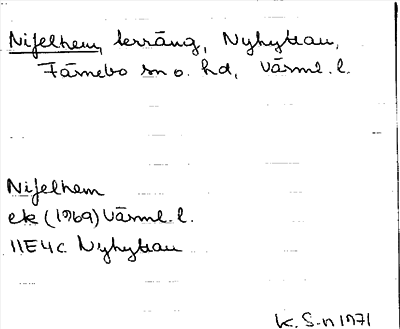 Nifelhem, terräng, Nyhyttan,
Färnebo sn o. hd, Värml. l.
Nifelhem
ek (1969) Värml. l.
11E4c Nyhyttan
K. S-n 1971